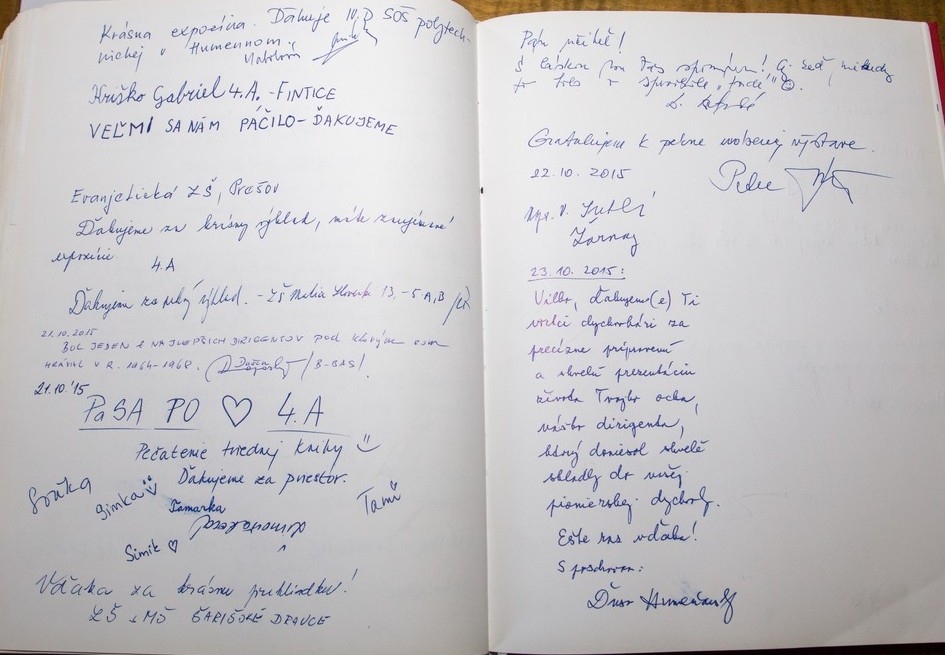 Krásna expozícia. Ďakuje IV.D SOŠ polytech-
nickej v Humennom
Hriško Gabriel 4.A. - FINTICE
VEĽMI SA NÁM PÁČILO - ĎAKUJEME
Evanjelická ZŠ, Prešov
Ďakujeme za krásny výklad, máte zaujímavé
expozície.
4.A
Ďakujeme za pekný výklad. - ZŠ Matice Slovenskej 13, - 5.A,B
21.10.2015
BOL JEDEN Z NAJLEPŠÍCH DIRIGENTOV POD KTORÝM SOM
HRÁVAL V R. 1964-1968. /B-BAS/
21.10.'15
PaSA PO ♡ 4.A
Pečatenie triednej knihy :)
Ďakujeme za priestor.
Simka :)
Tami
Tamarka
Simik ♡
Vďaka za krásnu prehliadku!
ZŠ s MŠ ŠARIŠSKÉ DRAVCE
Pán učiteľ!
S láskou na Vás
Gratulujem k pekne urobenej výstave.
22.10.2015
Peter
Mgr. V.
23.10.2015:
Vilko, ďakujem(e) Ti
všetci dychovkári za
precízne pripravenú
a skvelú prezentáciu
života Tvojho otca,
nášho dirigenta,
ktorý doniesol skvelé
skladby do našej
pionierskej dychovky.
Ešte raz vďaka!
S pozdravom: